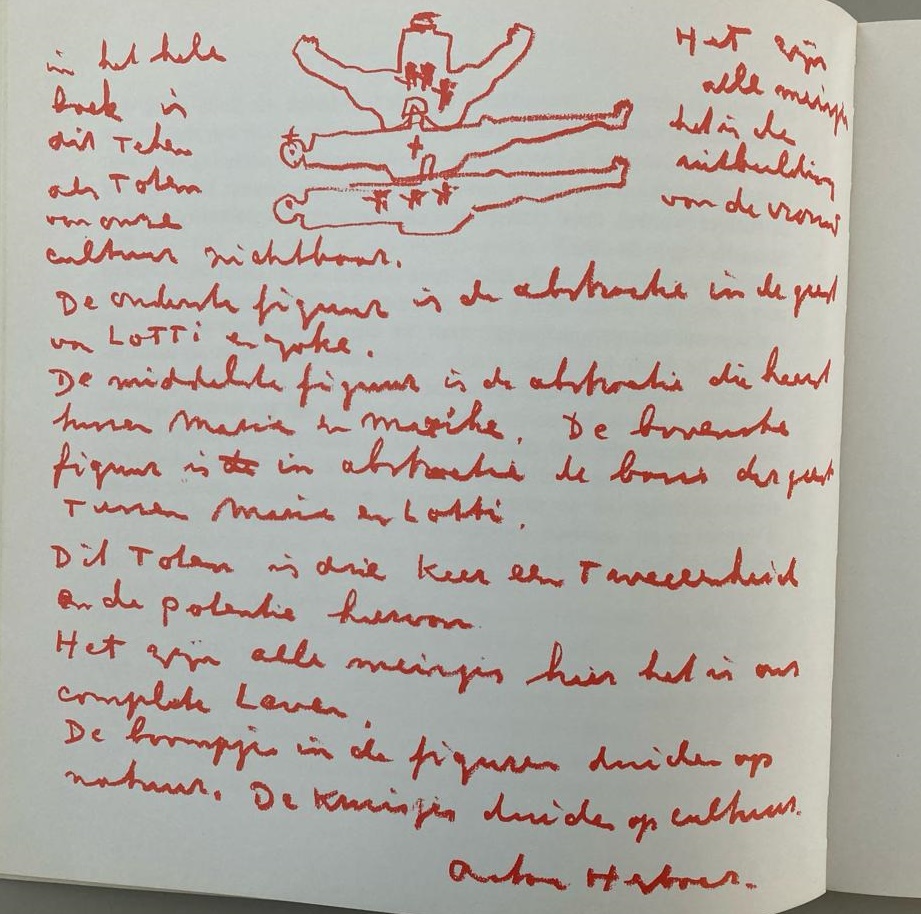 in het hele
boek is
dit Teken
als Totem
van onze
cultuur zichtbaar.
Het zijn
alle meisjes
het is de
uitbeelding
van de vrouw
De onderste figuur is de abstractie in de geest
van LOTTI en joke.
De middelste figuur is de abstractie die heerst
tussen Maria en Marike. De bovenste
figuur is in abstractie de basis der geest
Tussen Maria en Lotti.
Dit Totem is drie keer een Tweeeenheid
en de potentie hiervan
Het zijn alle meisjes hier het is ons
complete Leven.
De boompjes in de figuren duiden op
natuur. De kruisjes duiden op cultuur.
Anton Heyboer.